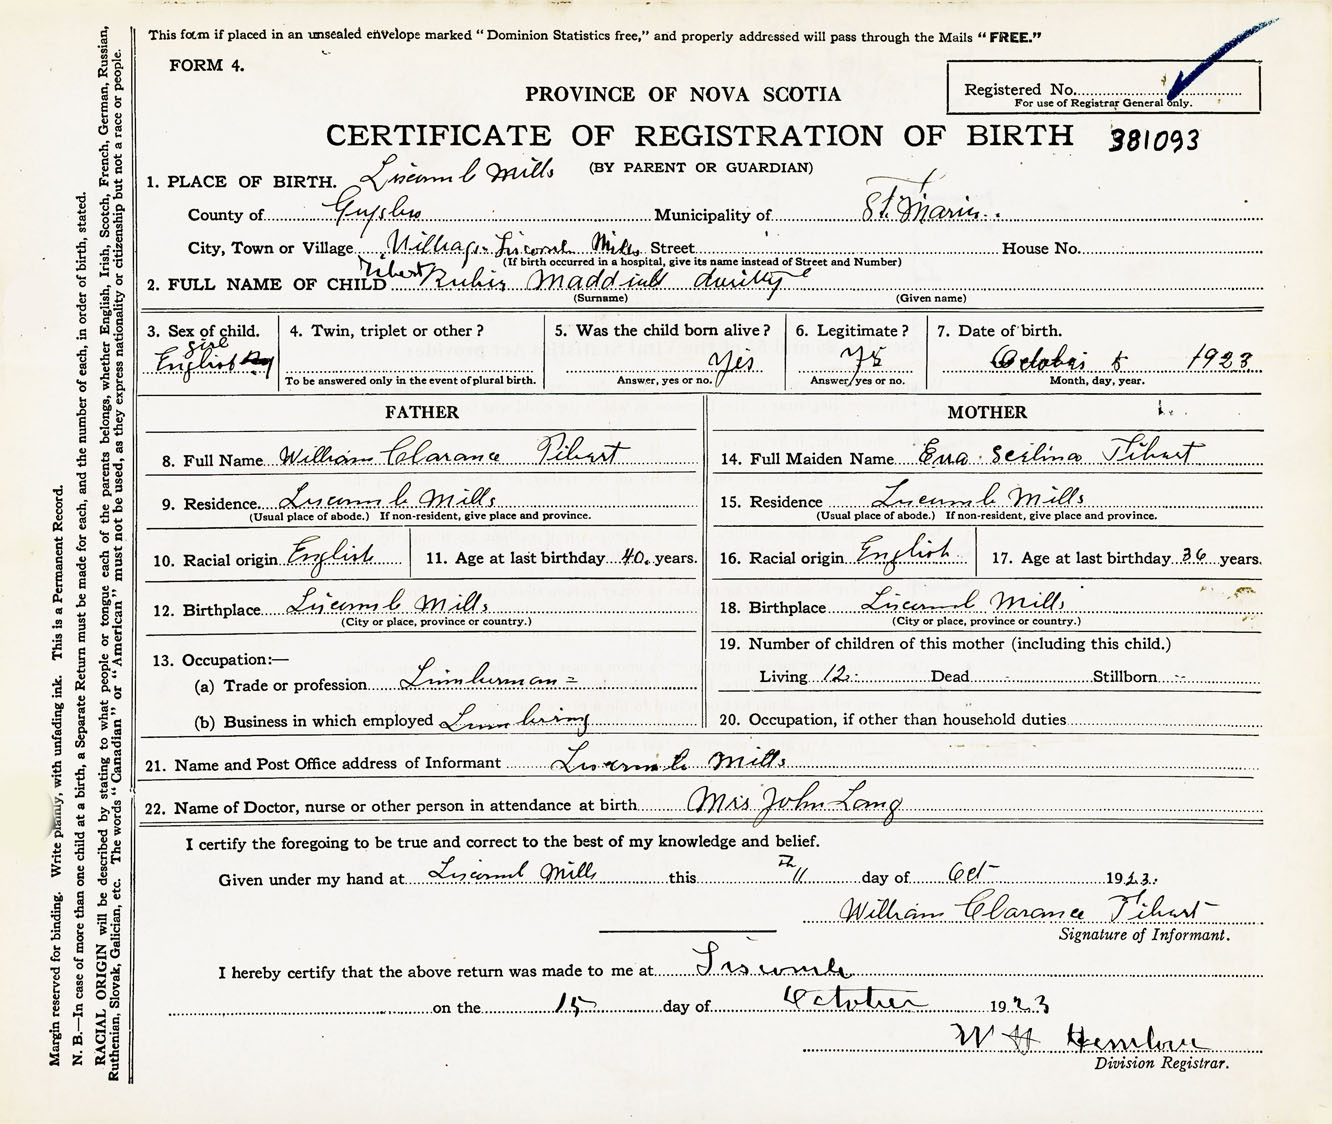 This form if placed in an unsealed envelope marked "Dominion Statistics free," and properly addressed will pass through the Mails "FREE."
FORM 4.
Registered No.
For use of Registrar General only.
PROVINCE OF NOVA SCOTIA
CERTIFICATE OF REGISTRATION OF BIRTH 381093
(BY PARENT OR GUARDIAN)
1. PLACE OF BIRTH. Liscomb Mills
County of Guysboro Municipality of St. Maries
City, Town or Village Village Liscomb Mills Street House No.
(If birth occurred in a hospital, give its name instead of Street and Number)
2. FULL NAME OF CHILD Tibert Rubie
(Surname) (Given name)
3. Sex of child. 4. Twin, triplet or other? 5. Was the child born alive? 6. Legitimate? 7. Date of birth.
girl
English Yes Yes October 5 1923
To be answered only in the event of plural birth. Answer, yes or no. Answer, yes or no. Month, day, year.
FATHER
8. Full Name William Clarance Tibert
9. Residence Liscomb Mills
(Usual place of abode.) If non-resident, give place and province.
10. Racial origin English 11. Age at last birthday 40 years.
12. Birthplace Liscomb Mills
(City or place, province or country.)
13. Occupation:—
(a) Trade or profession Lumberman
(b) Business in which employed Lumbering
MOTHER
14. Full Maiden Name Eva Scilina Tibert
15. Residence Liscomb Mills
(Usual place of abode.) If non-resident, give place and province.
16. Racial origin English 17. Age at last birthday 36 years.
18. Birthplace Liscomb Mills
(City or place, province or country.)
19. Number of children of this mother (including this child.)
Living 12 Dead Stillborn --
20. Occupation, if other than household duties
21. Name and Post Office address of Informant Liscomb Mills
22. Name of Doctor, nurse or other person in attendance at birth Mrs John Lang
I certify the foregoing to be true and correct to the best of my knowledge and belief.
Given under my hand at Liscomb Mills this 11th day of Oct 1923.
William Clarance Tibert
Signature of Informant.
I hereby certify that the above return was made to me at Liscomb
on the 15 day of October 1923
W H Hemlow
Division Registrar.
Margin reserved for binding. Write plainly, with unfading ink. This is a Permanent Record.
N. B.—In case of more than one child at a birth, a Separate Return must be made for each, and the number of each, in order of birth, stated.
RACIAL ORIGIN will be described by stating to what people or tongue each of the parents belongs, whether English, Irish, Scotch, French, German, Russian,
Ruthenian, Slovak, Galician, etc. The words "Canadian" or "American" must not be used, as they express nationality or citizenship but not a race or people.